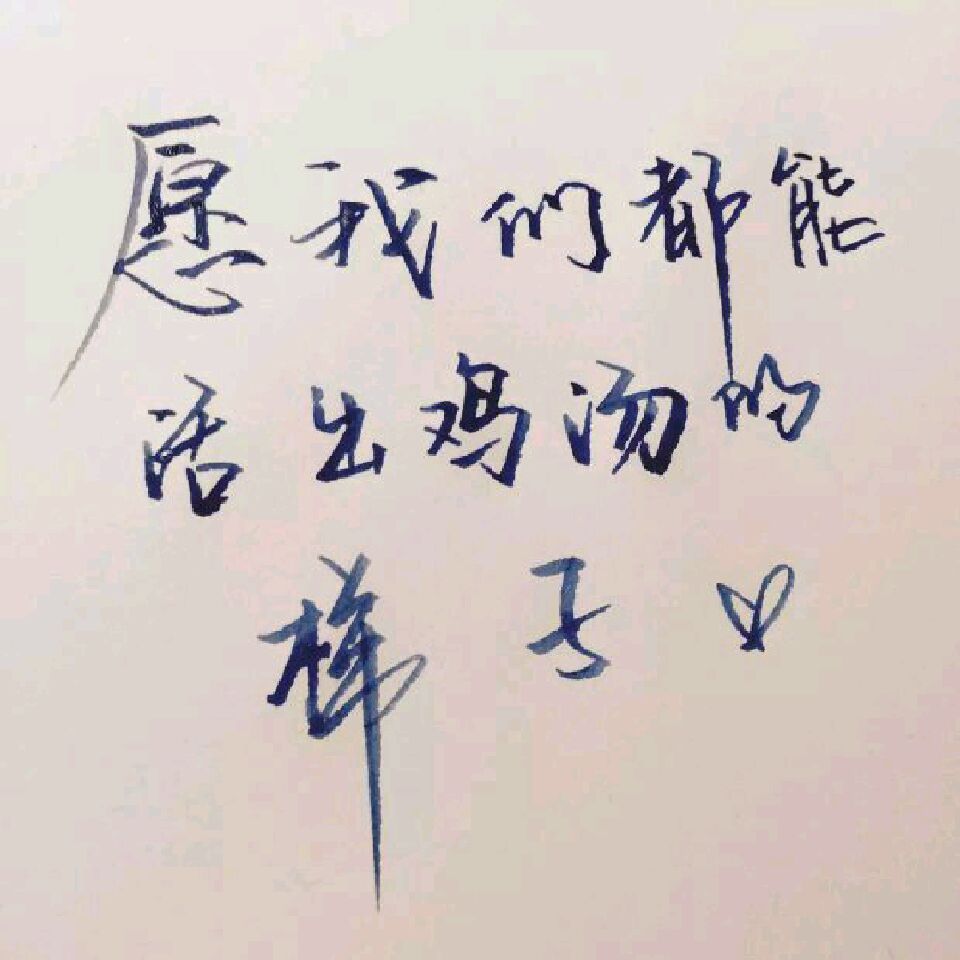 愿我们都能
活出鸡汤的
样子